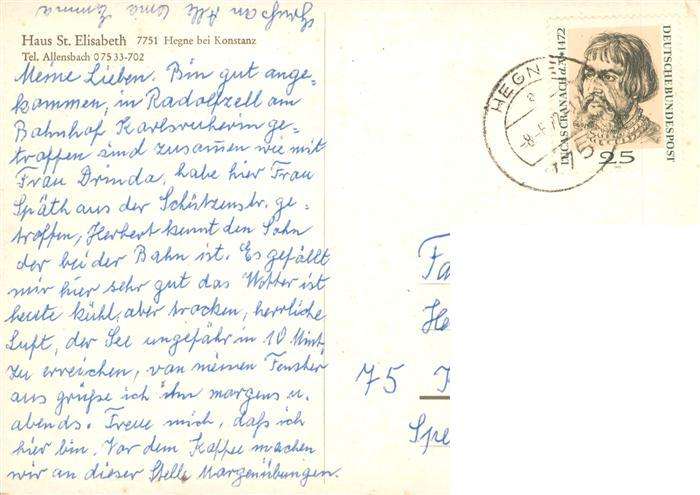 Haus St. Elisabeth 7751 Hegne bei Konstanz
Tel. Allensbach 07533-702
Meine Lieben. Bin gut ange-
kommen, in Radolfzell am
Bahnhof Karlsruherin ge-
troffen sind zusammen wie mit
Frau Drinda, habe hier Frau
Späth aus der Schützenstr. ge-
troffen, Herbert kennt den Sohn
der bei der Bahn ist. Es gefällt
mir hier sehr gut das Wetter ist
heute kühl, aber trocken, herrliche
Luft, der See ungefähr in 10 Minut.
zu erreichen, von meinen Fenster
aus grüße ich ihn morgens u.
abends. Freue mich, daß ich
hier bin. Vor dem Kaffee machen
wir an dieser Stelle Morgenübungen.
Grüße an Alle Oma Emma
HEGNE
DEUTSCHE BUNDESPOST
LUCAS CRANACH d.Ä. † 1472
25
Fa
He
75 K
Spe